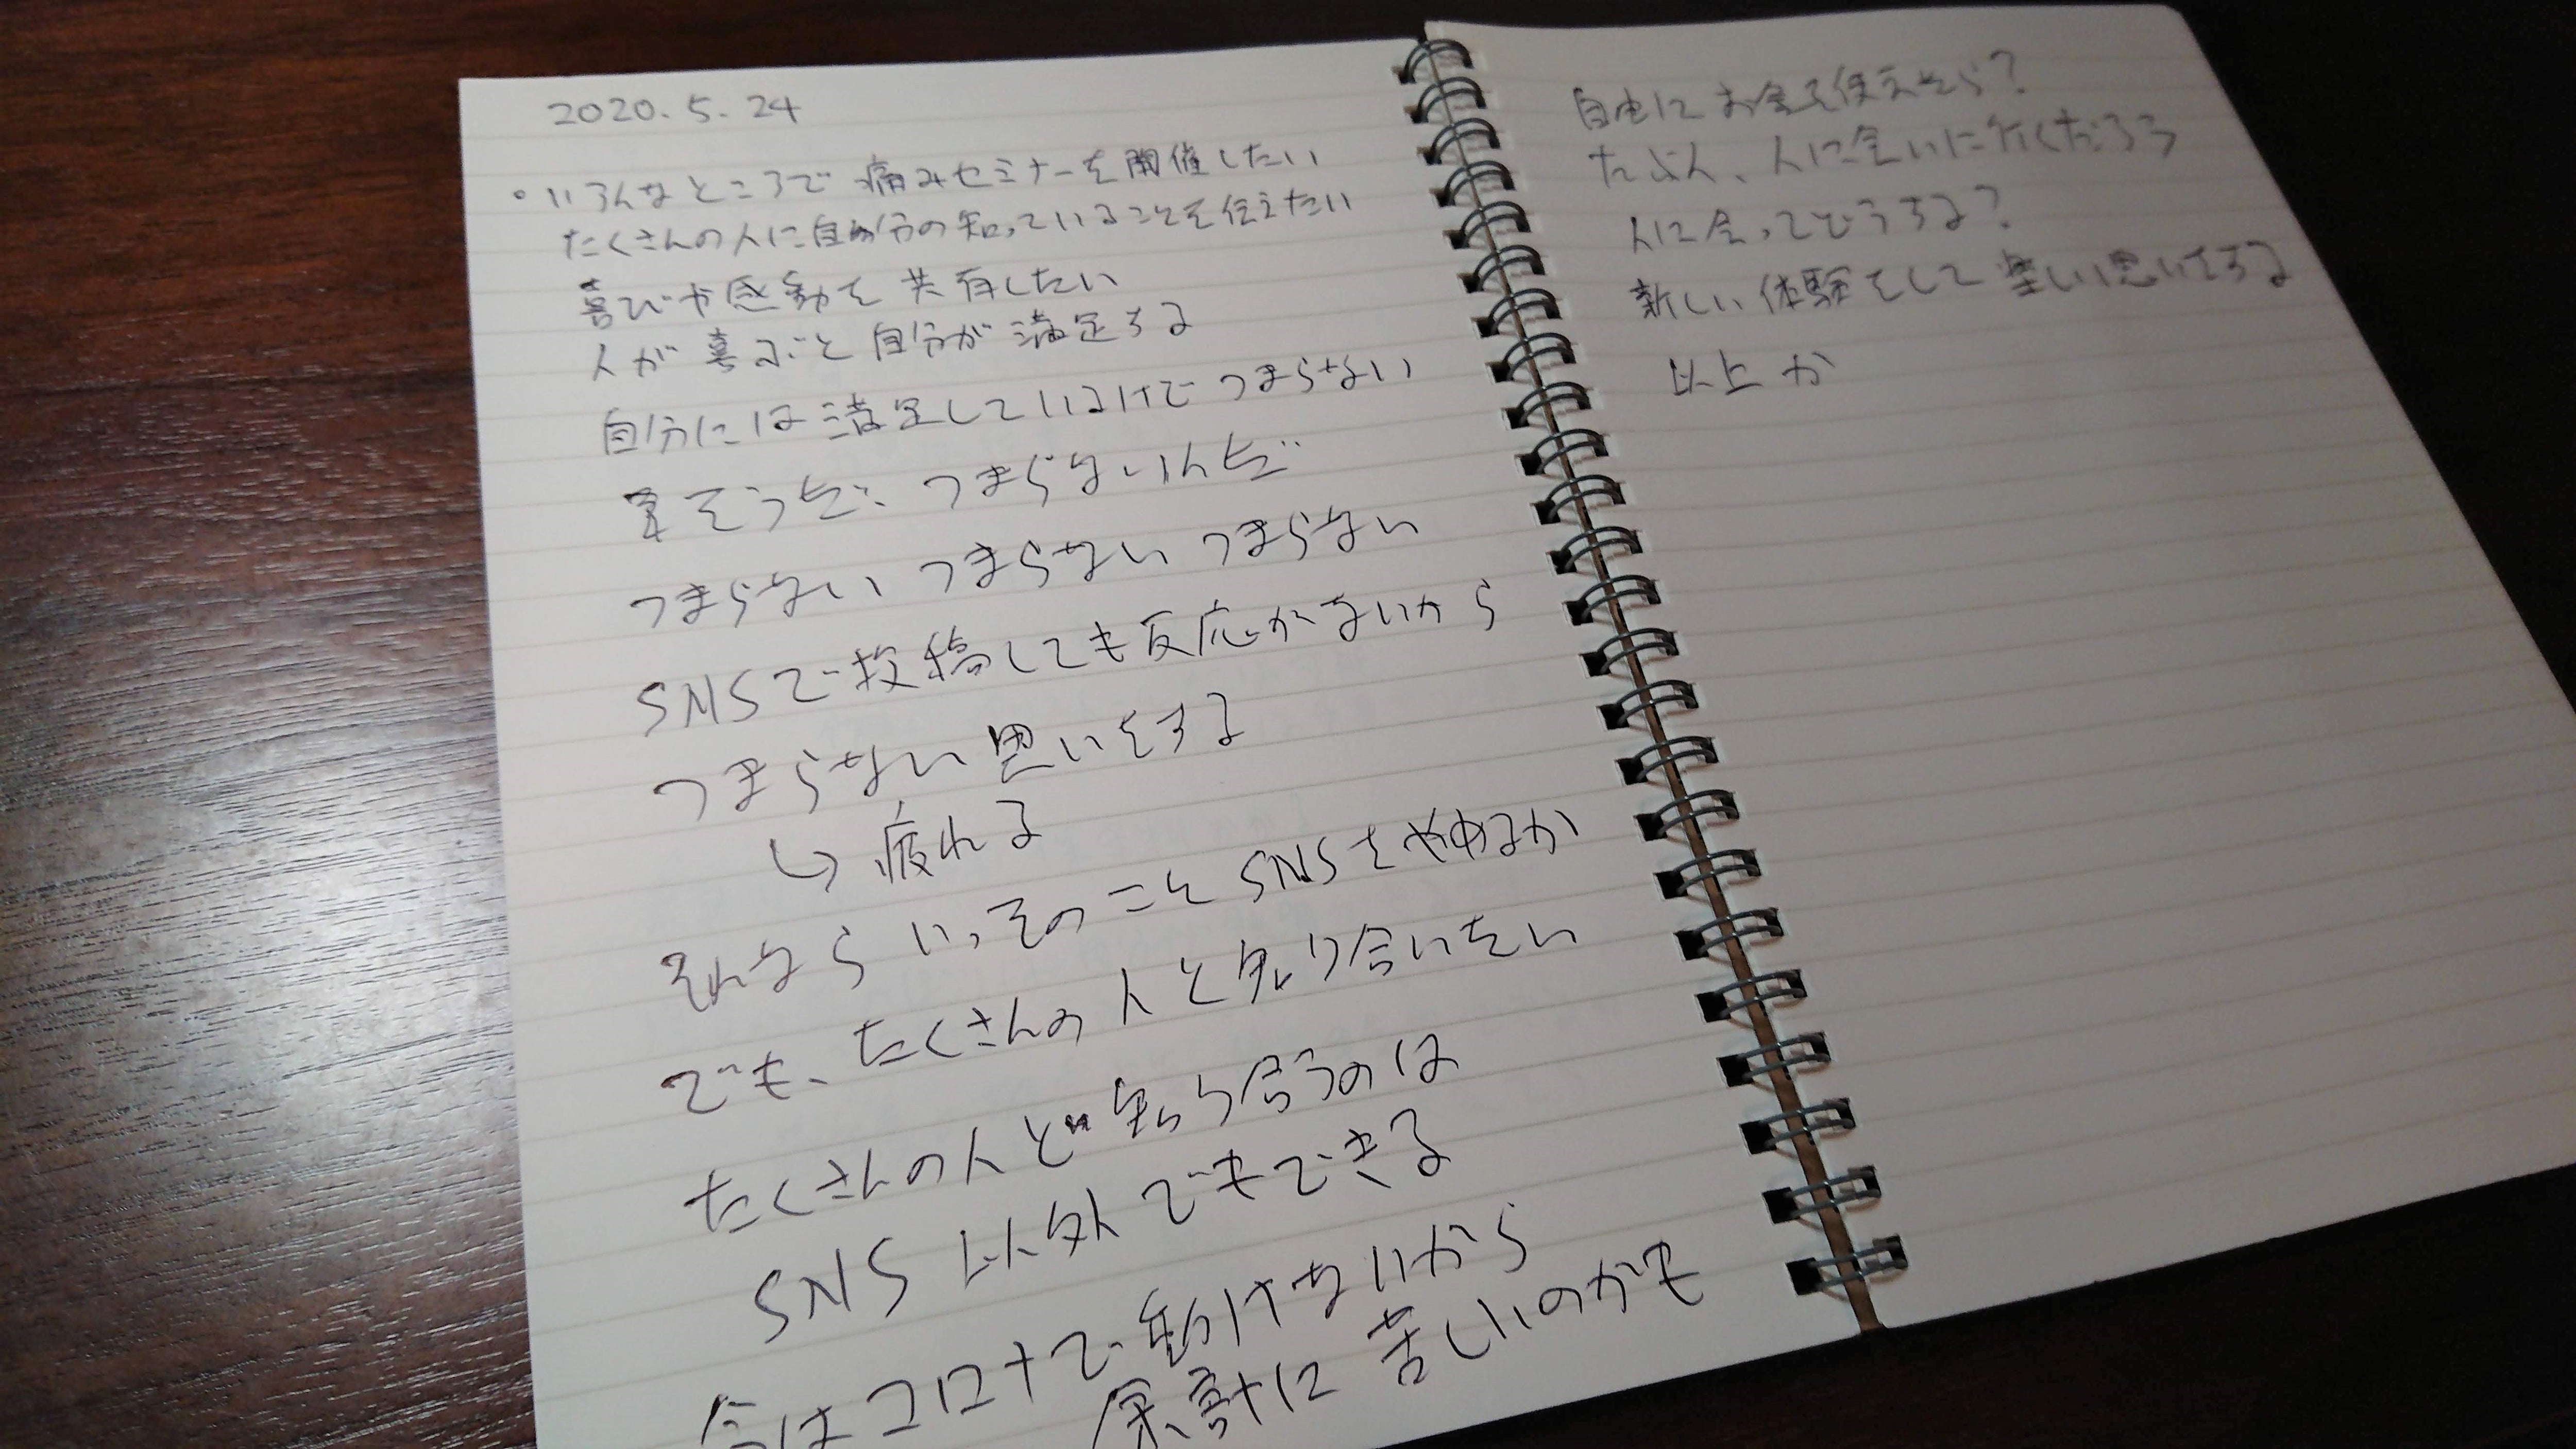 2020.5.24
・いろんなところで痛みセミナーを開催したい
たくさんの人に自分の知っていることを伝えたい
喜びや感動を共有したい
人が喜ぶと自分が満足する
自分には満足しているけどつまらない
そうだ、つまらないんだ
つまらない つまらない つまらない
SNSで投稿しても反応がないから
つまらない思いをする
↳疲れる
それならいっそのことSNSをやめるか
でも、たくさんの人と知り合いたい
たくさんの人と知り合うのは
SNS以外でもできる
今はコロナで動けないから
余計に苦しいのかも
自由にお金を使えたら?
たぶん、人に会いに行くだろう
人に会ってどうする?
新しい体験をして楽しい思いをする
以上か